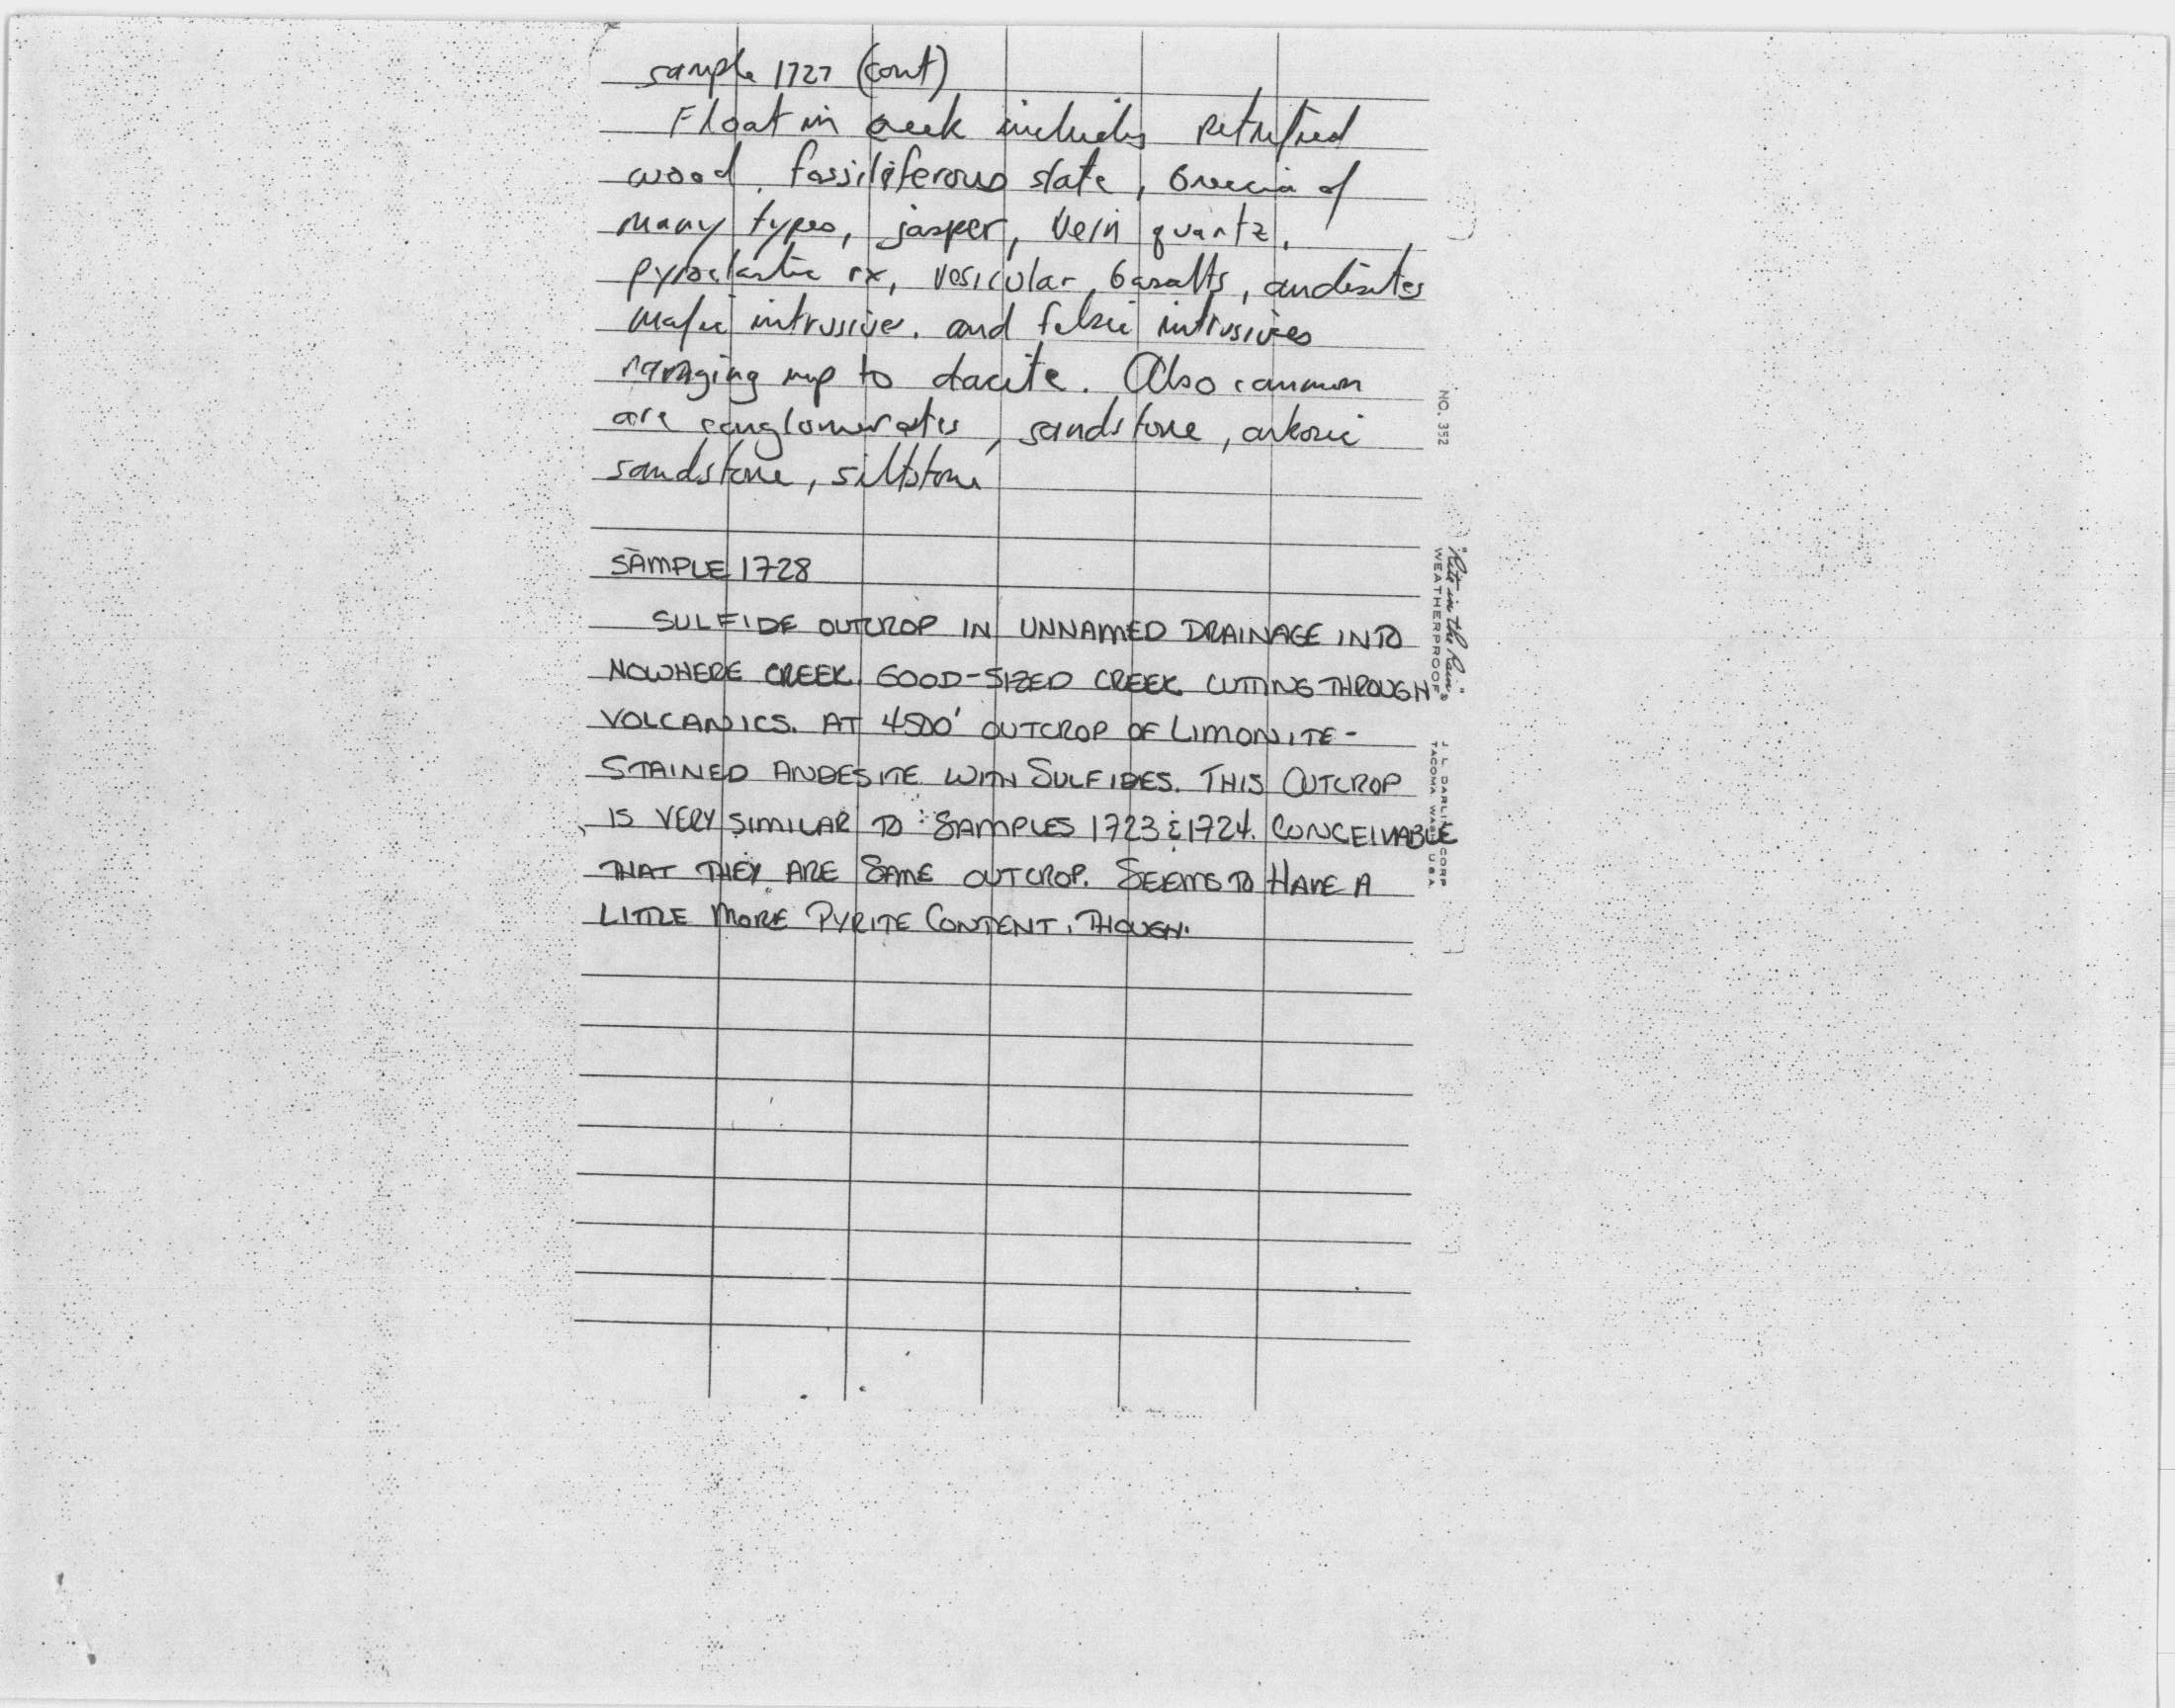 sample 1727 (cont)
Float in creek includes petrified
wood, fossiliferous slate, breccia of
many types, jasper, vein quartz,
pyroclastic rx, vesicular basalts, andesites
mafic intrusive, and felsic intrusives
ranging up to dacite. Also common
are conglomerates, sandstone, arkosic
sandstone, siltstone
SAMPLE 1728
SULFIDE OUTCROP IN UNNAMED DRAINAGE INTO
NOWHERE CREEK. GOOD-SIZED CREEK CUTTING THROUGH
VOLCANICS. AT 4500' OUTCROP OF LIMONITE-
STAINED ANDESITE WITH SULFIDES. THIS OUTCROP
IS VERY SIMILAR TO SAMPLES 1723 & 1724. CONCEIVABLE
THAT THEY ARE SAME OUTCROP. SEEMS TO HAVE A
LITTLE MORE PYRITE CONTENT, THOUGH.
NO. 352
"Rite in the Rain"
WEATHERPROOF
J. L. DARLING CORP
TACOMA WASH USA